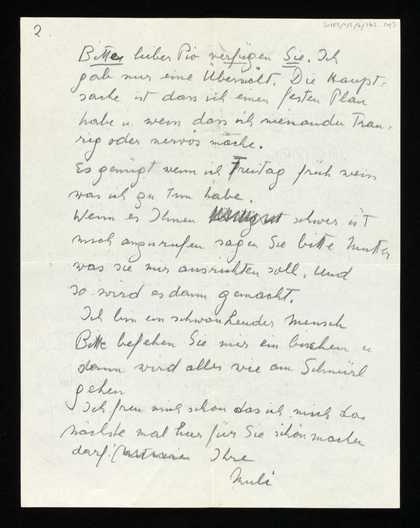 2
Bitte lieber Pio verfügen Sie. Ich
gab nur eine Übersicht. Die Haupt-
sache ist dass ich einen festen Plan
habe u. weiss dass ich niemanden trau-
rig oder nervös mache.
Es genügt wenn ich Freitag früh weiss
was ich zu tun habe.
Wenn es Ihnen schwer ist
mich anzurufen sagen Sie bitte Mutter
was sie mir ausrichten soll. Und
so wird es dann gemacht.
Ich bin ein schwankender Mensch
Bitte befehlen Sie mir ein bischen u
dann wird alles wie am Schnürl
gehen
Ich freu mich schon das ich mich das
nächste mal hier für Sie schön machen
darf. Ihre